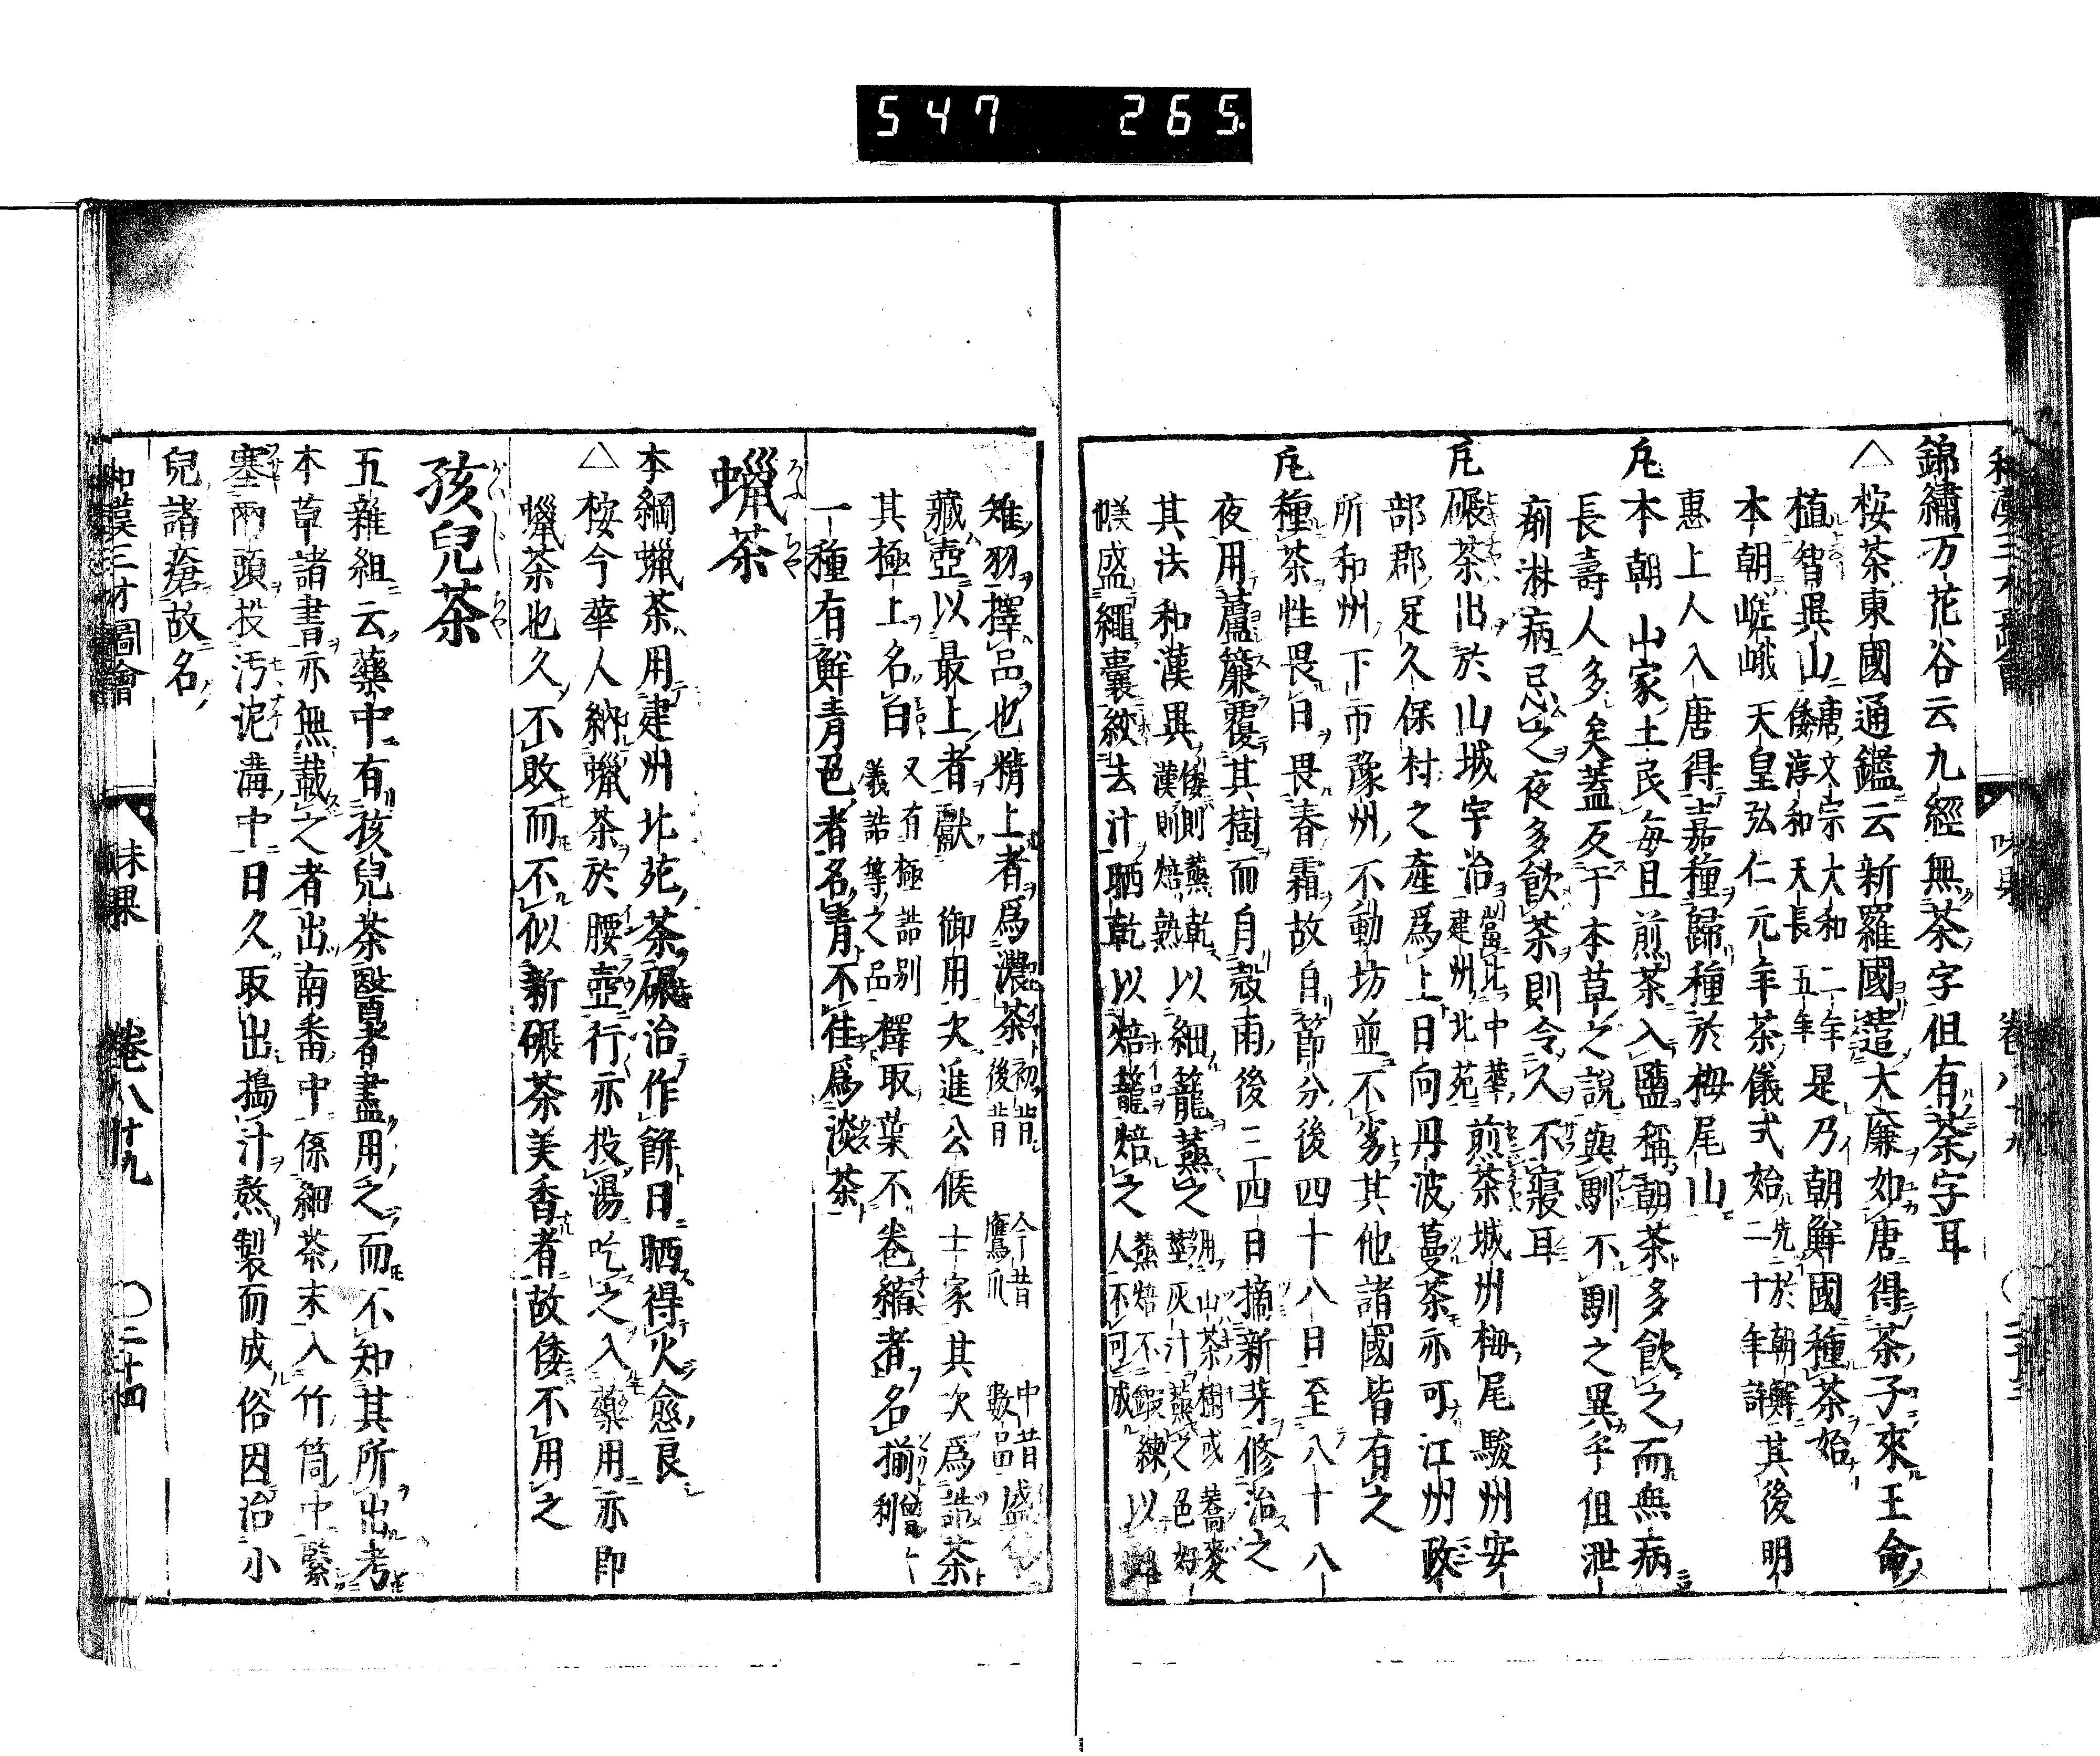 547 265
錦繡万花谷云九經無茶字但有荼字耳
△桉茶東國通鑑云新羅國遣大廉如唐得茶子來王命
植智異山 唐文宗大和二年 倭淳和天長五年 是乃朝鮮國種茶始
本朝嵯峨天皇弘仁元年茶儀式始 先於朝鮮二十年許 其後明
惠上人入唐得嘉種歸種於栂尾山
凡本朝山家土民每旦煎茶入鹽稱朝茶多飮之而無病
長壽人多矣蓋反于本草之說與馴不馴之異乎但泄
痢淋病忌之夜多飮茶則令久不寢耳
凡碾茶出於山城宇治 當比中華建州北苑 煎茶城州栂尾駿州安
部郡足久保村之產爲上日向丹波蔓茶亦可江州政
所和州下市豫州不動坊並不劣其他諸國皆有之
凡種茶性畏日畏春霜故自節分後四十八日至八十八
夜用蘆簾覆其樹而自穀雨後三四日摘新芽修治之
其法和漢異 倭則蒸乾 漢則焙熟 以細籠蒸之 用山茶樹或蕎麥 莖灰汁蒸之色好
㡌盛繩囊絞去汁晒乾以焙籠焙之 蒸焙不鍜練 人不可成 以
雉羽擇品也精上者爲濃茶 初昔 後昔 今昔 鷹爪 中昔 數品 盛
藏壺以最上者獻 御用次進公候士家其次爲詰茶
其極上名白 又有極詰別儀詰等之品 擇取葉不卷縮者名揃 利
一種有鮮青色者名青不佳爲淡茶
蠟茶 らふちや
本綱蠟茶用建州北苑茶碾治作餅日晒得火愈良
△桉今華人納蠟茶於腰壺行亦投湯吃之入藥用亦即
蠟茶也久不敗而不似新碾茶美香者故倭不用之
孩兒茶 がいじちや
五雜組云藥中有孩兒茶醫者盡用之而不知其所出考
本草諸書亦無載之者出南番中係細茶末入竹筒中緊
塞兩頭投汚泥溝中日久取出搗汁熬製而成俗因治小
兒諸瘡故名
和漢三才圖會 味果 卷八十九 〇二十四